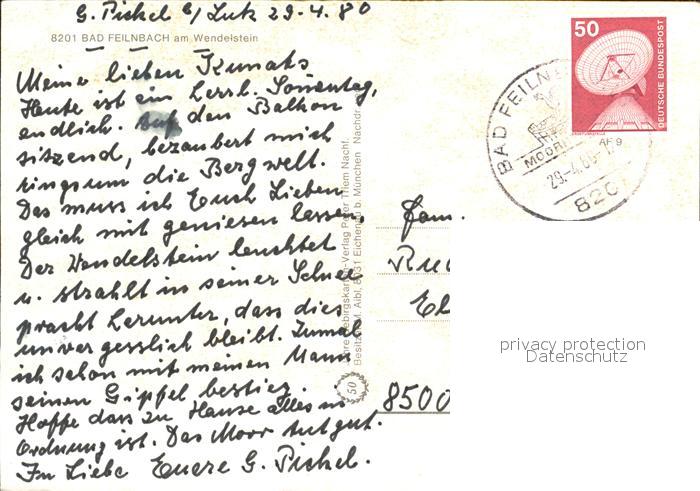 G. Pickel b/ Lutz 29.4.80
8201 BAD FEILNBACH am Wendelstein
Meine lieben Kunaks
Heute ist ein herrl. Sonnentag,
endlich. Auf den Balkon
sitzend, bezaubert mich
ringsum die Bergwelt.
Das muss ich Euch Lieben
gleich mit geniesen lassen,
Der Wendelstein leuchtet
u. strahlt in seiner Schnee
pracht herunter, dass dies
unvergesslich bleibt. Zumal
ich schon mit meinen Mann
seinen Gippel bestieg.
Hoffe dass zu Hause alles in
Ordnung ist. Das Moor tut gut.
In Liebe Euere G. Pickel.
Verlag Peter Thiem Nachf.
M. Aibl, 8031 Eichenau b. München Nachdr.
50
50
DEUTSCHE BUNDESPOST
BAD FEILN
MOOR
AF9
29.-4.80
820
Fam.
8500
privacy protection
Datenschutz